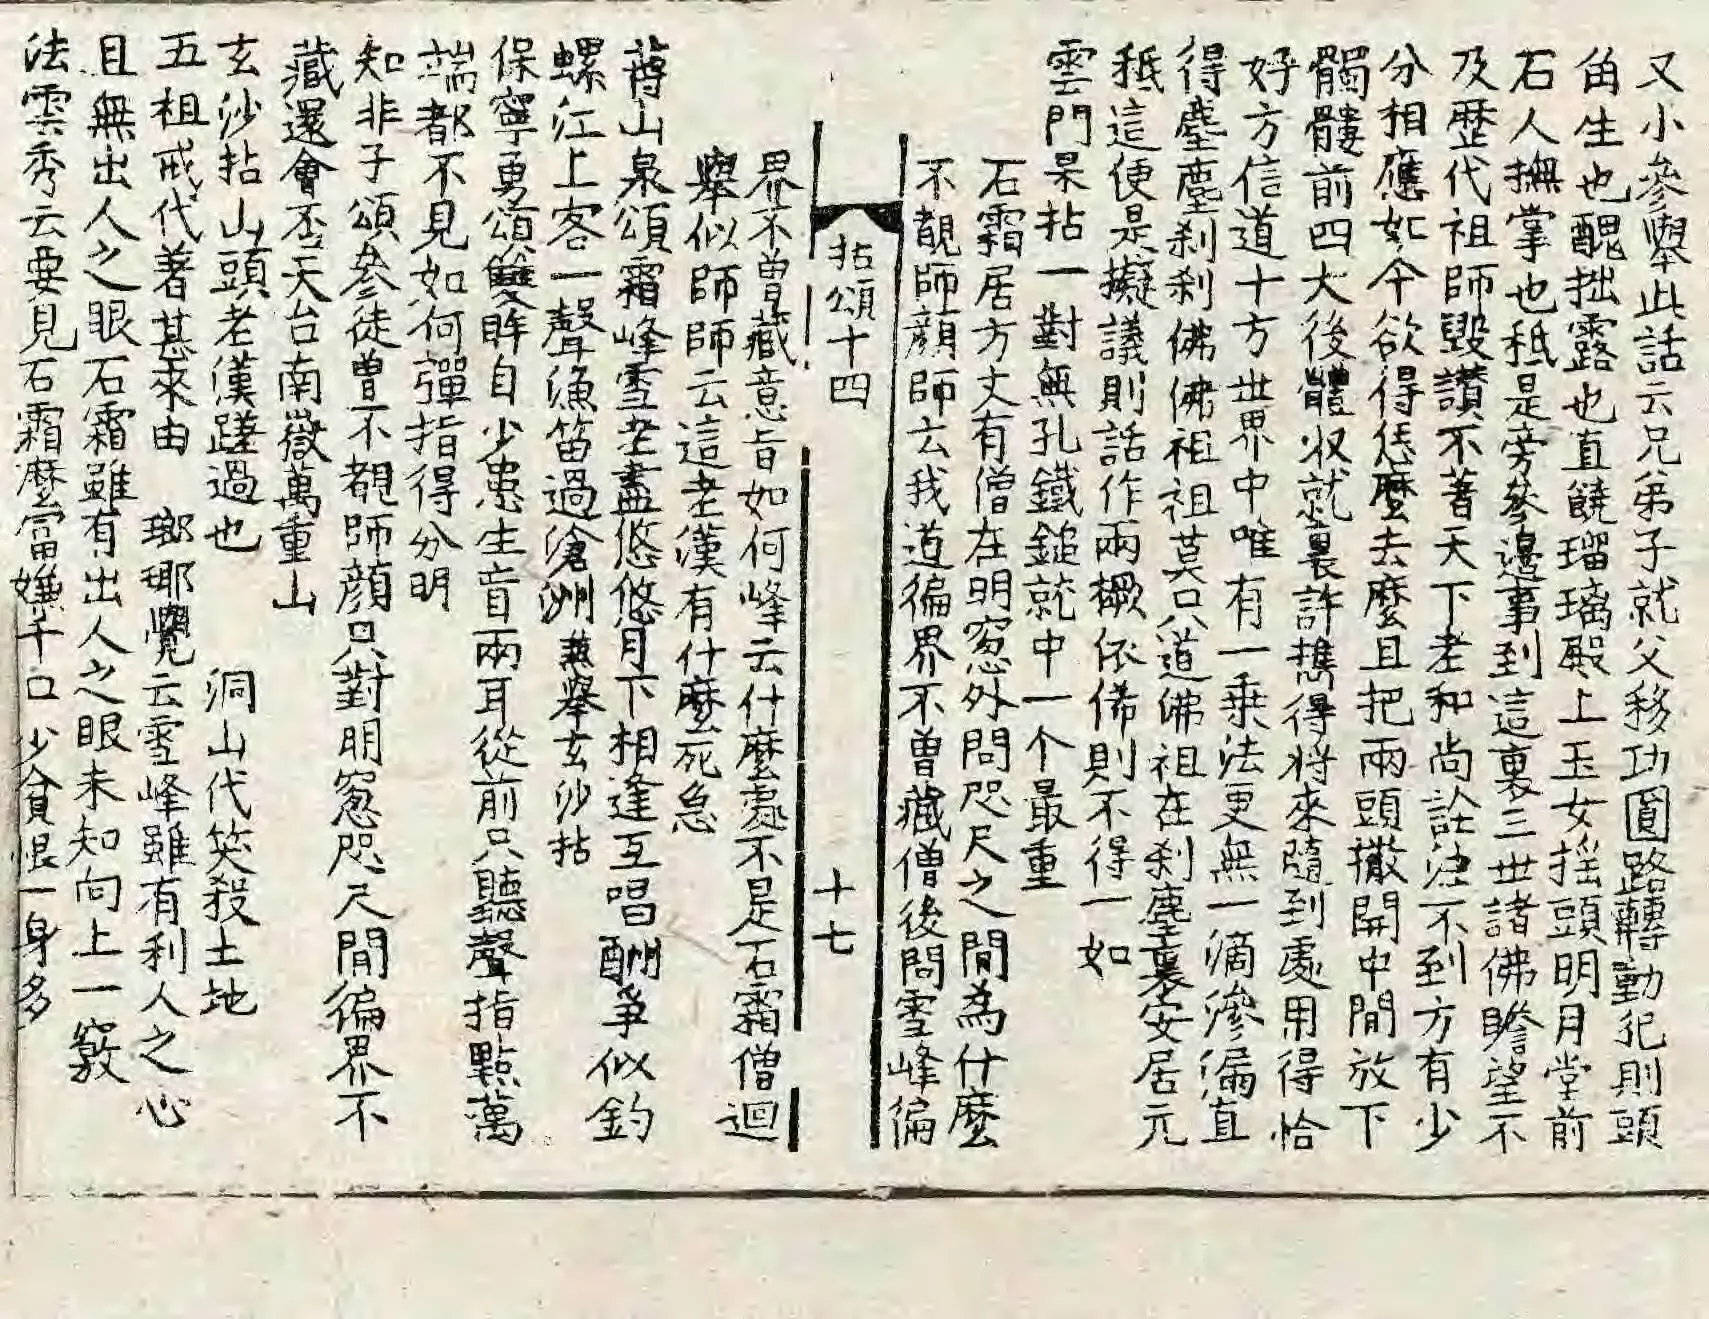 又小參舉此話云兄弟子就父移功圓路轉動犯則頭
角生也醜拙露也直饒瑠璃殿上玉女搖頭明月堂前
石人撫掌也秪是旁參邊事到這裏三世諸佛瞻望不
及歷代祖師毀讚不著天下老和尚詮注不到方有少
分相應如今欲得恁麼去麼且把兩頭撒開中間放下
髑髏前四大後體収就裏許擕得將來隨到處用得恰
好方信道十方世界中唯有一乘法更無一滴滲漏直
得塵塵剎剎佛佛祖祖莫只道佛祖在剎塵裏安居元
秪這便是擬議則話作兩橛依俙則不得一如
雲門杲拈一對無孔鐵鎚就中一个最重
石霜居方丈有僧在明窓外問咫尺之間為什麼
不覩師顔師云我道徧界不曾藏僧後問雪峰徧
拈頌十四
十七
界不曾藏意旨如何峰云什麼處不是石霜僧迴
舉似師師云這老漢有什麼死急
蔣山泉頌霜峰雪老盡悠悠月下相逢互唱酬爭似釣
螺江上客一聲漁笛過滄洲 兼舉玄沙拈
保寧勇頌雙眸自少患生盲兩耳從前只聽聲指點萬
端都不見如何彈指得分明
知非子頌參徒曾不覩師顔只對明窓咫尺間徧界不
藏還會否天台南嶽萬重山
玄沙拈山頭老漢蹉過也 洞山代笑殺土地
五祖戒代著甚來由 瑯琊覺云雪峰雖有利人之心
且無出人之眼石霜雖有出人之眼未知向上一竅
法雲秀云要見石霜麼富嫌千口少貧恨一身多